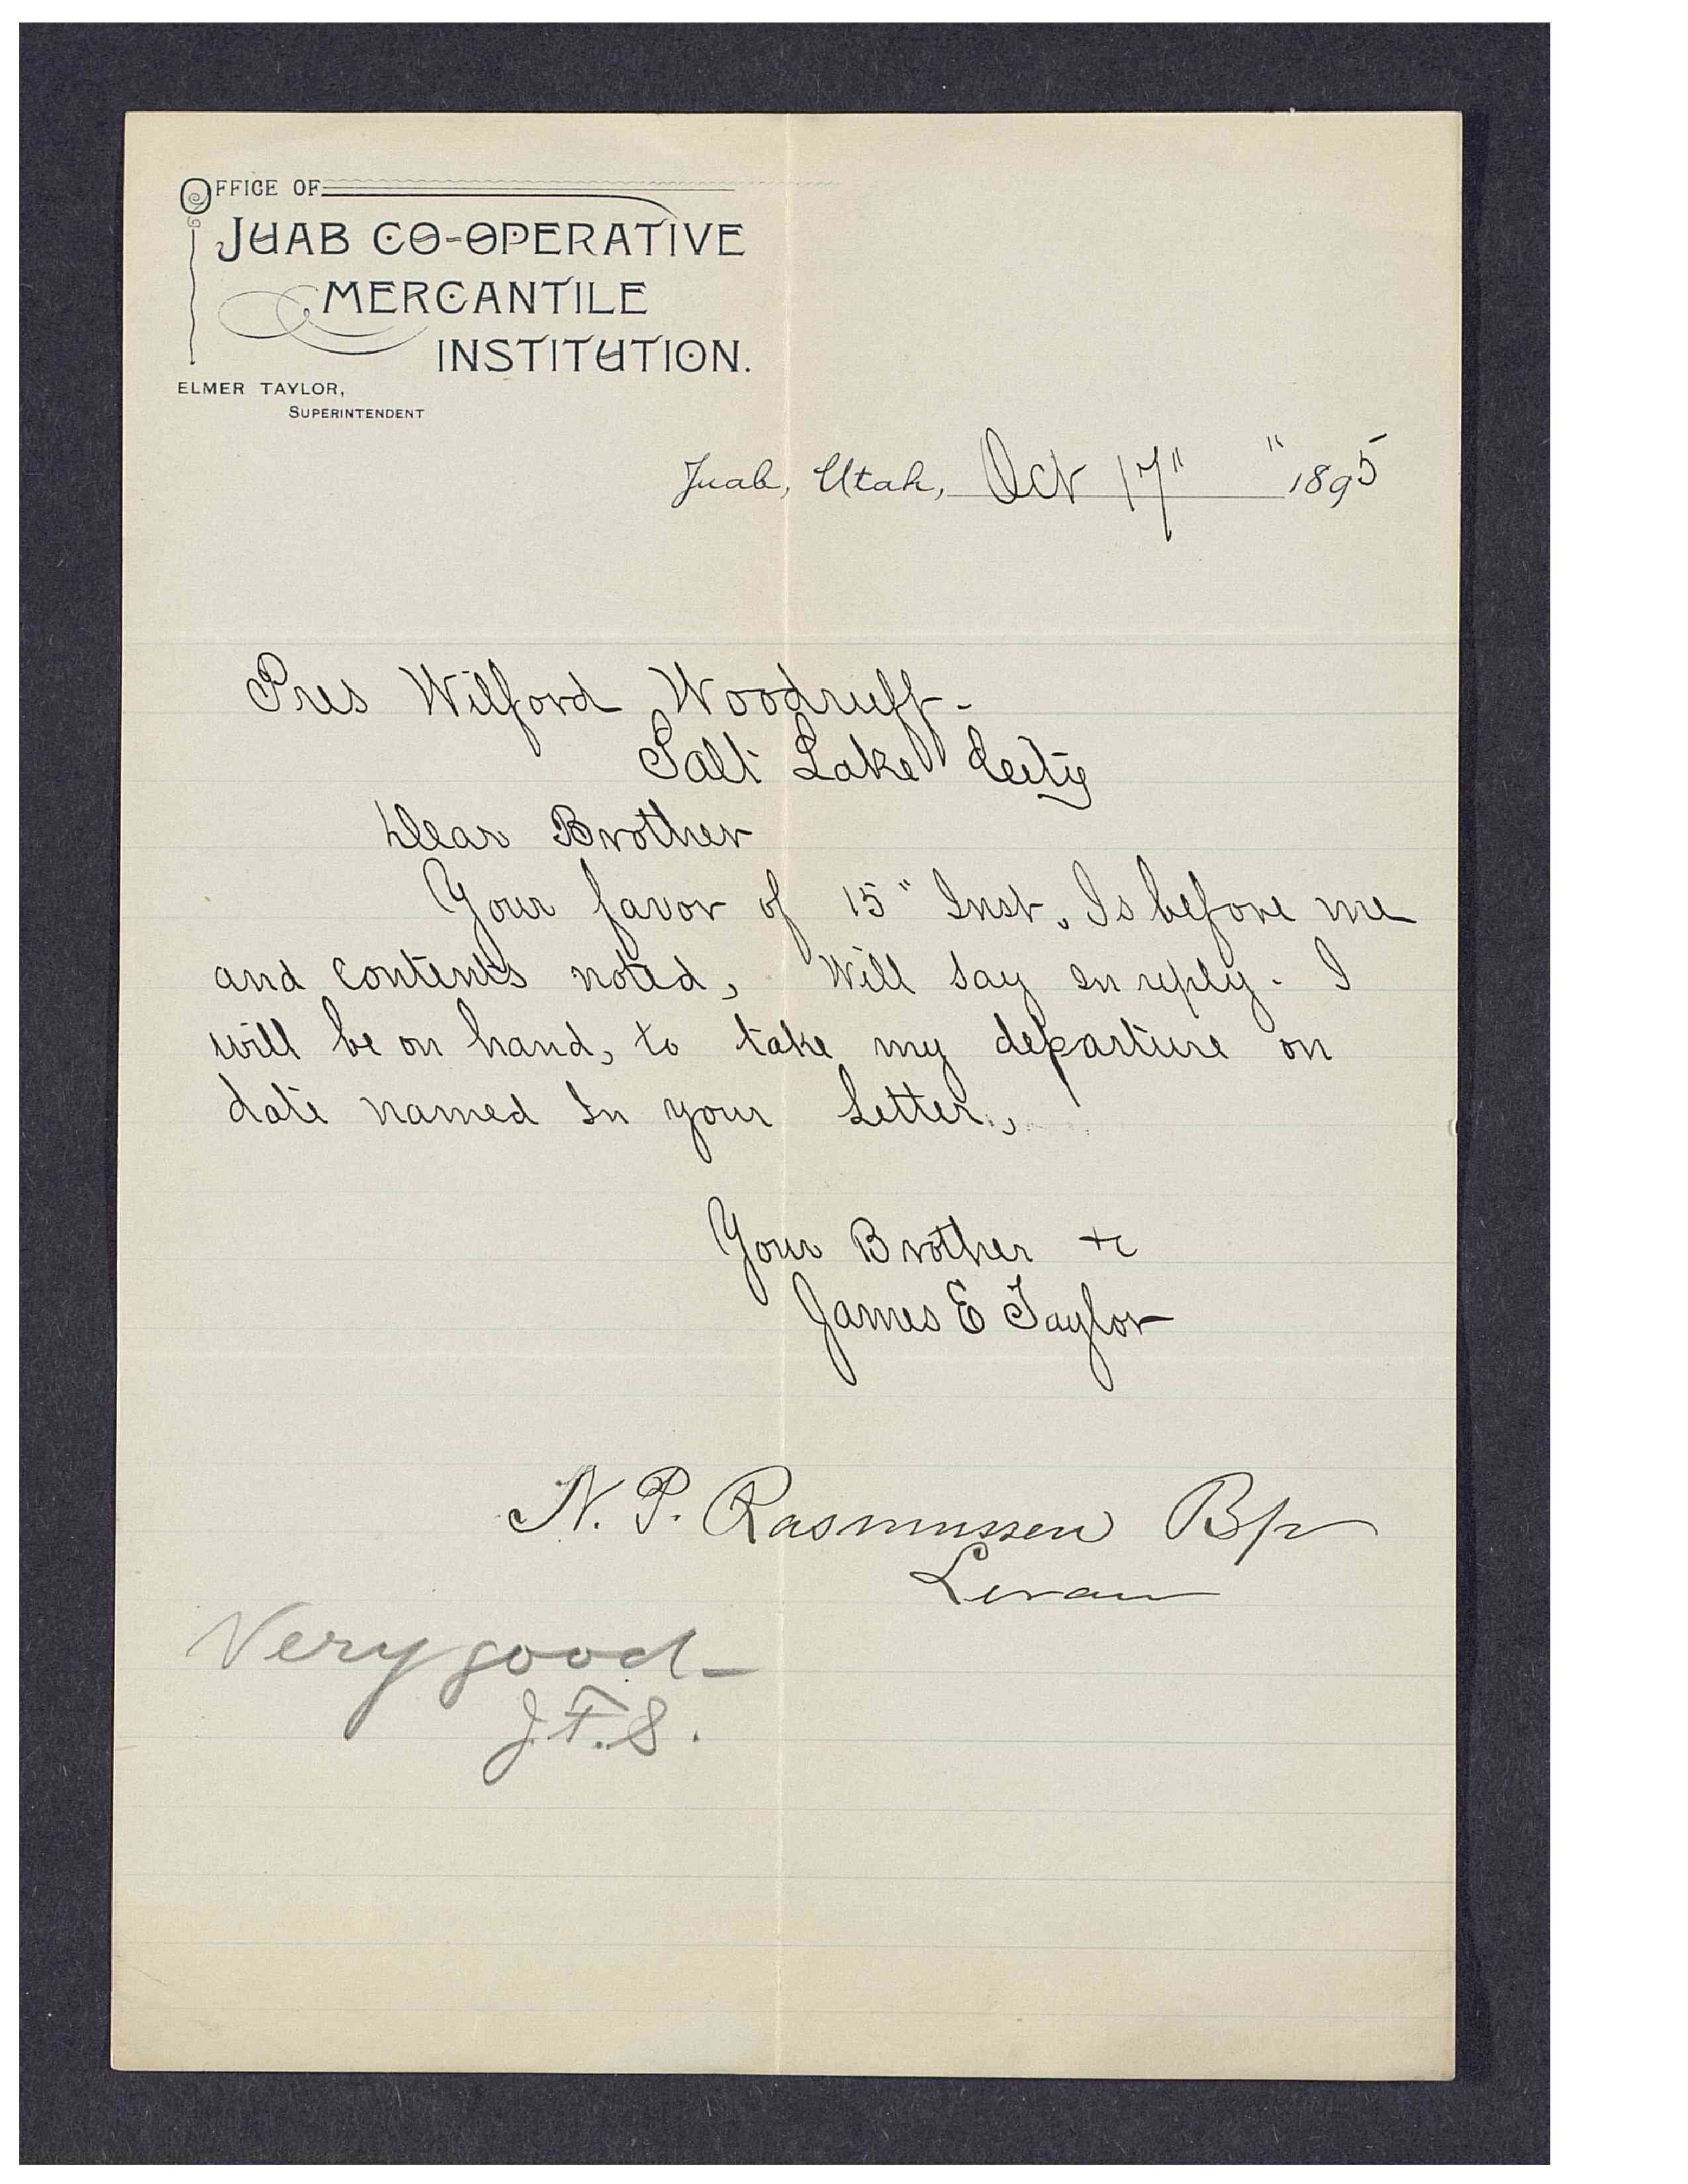 OFFICE OF
JUAB CO-OPERATIVE
MERCANTILE
INSTITUTION.
ELMER TAYLOR,
SUPERINTENDENT
Juab, Utah, Oct 17" " 1895
Pres Wilford Woodruff-
Salt Lake City
Dear Brother
Your favor of 15" Inst. Is before me
and contents noted, Will say In reply- I
will be on hand, to take my departure on
date named In your Letter.,
Your Brother +c
James E Taylor
N. P. Rasmussen Bp
Levan
Very good-
J.F.S.